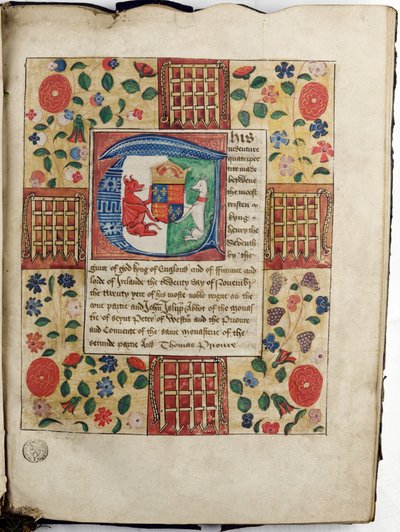 This
indenture
quatriper
tite made
betwene
the moost
cristen
kyng
henry the
Seventh
by the
grace of god kyng of Englond and of ffraunce and
lorde of Irlande the twenty day of Novembr
the twenty yere of his moste noble reigne on the
one partie and John Islipp Abbot of the monas
tie of seynt Peter of Westm and the Prioure
and Convente of the same monasterie of the
secunde partie And Thomas Prioure